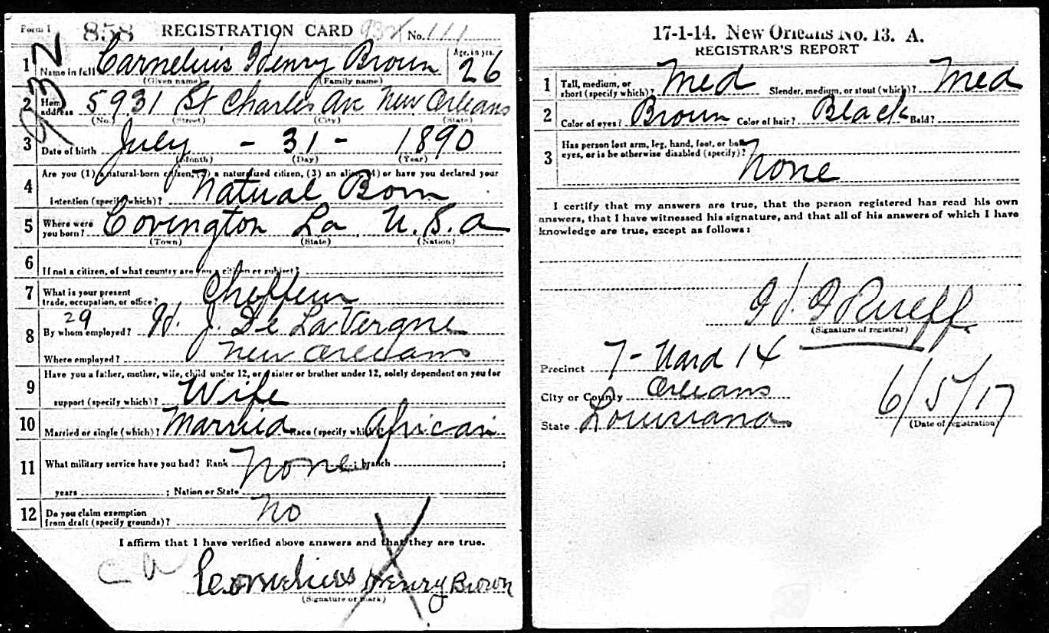 Form 1 858 REGISTRATION CARD 932 No. 111
932
1 Name in full Carnelius Henry Brown Age, in yrs. 26
(Given name) (Family name)
2 Home address 5931 St Charles Ave New Orleans
(No.) (Street) (City) (State)
3 Date of birth July - 31 - 1890
(Month) (Day) (Year)
4 Are you (1) a natural-born citizen, (2) a naturalized citizen, (3) an alien, (4) or have you declared your
intention (specify which)? Natural Born
5 Where were you born? Covington La U.S.a
(Town) (State) (Nation)
6 If not a citizen, of what country are you a citizen or subject?
7 What is your present trade, occupation, or office? Cheffeur
29
8 By whom employed? W. J. De LaVergne
Where employed? New Orleans
9 Have you a father, mother, wife, child under 12, or a sister or brother under 12, solely dependent on you for
support (specify which)? Wife
10 Married or single (which)? Married Race (specify which)? African
11 What military service have you had? Rank None ; branch ;
years ; Nation or State
12 Do you claim exemption from draft (specify grounds)? No
I affirm that I have verified above answers and that they are true.
Cornelius Henry Brown
(Signature or mark)
17-1-14. New Orleans No. 13. A.
REGISTRAR'S REPORT
1 Tall, medium, or short (specify which)? Med Slender, medium, or stout (which)? Med
2 Color of eyes? Brown Color of hair? Black Bald?
3 Has person lost arm, leg, hand, foot, or both eyes, or is he otherwise disabled (specify)? None
I certify that my answers are true, that the person registered has read his own
answers, that I have witnessed his signature, and that all of his answers of which I have
knowledge are true, except as follows:
(Signature of registrar)
Precinct 7 - Ward 14
City or County Orleans
State Louisiana 6/5/17
(Date of registration)